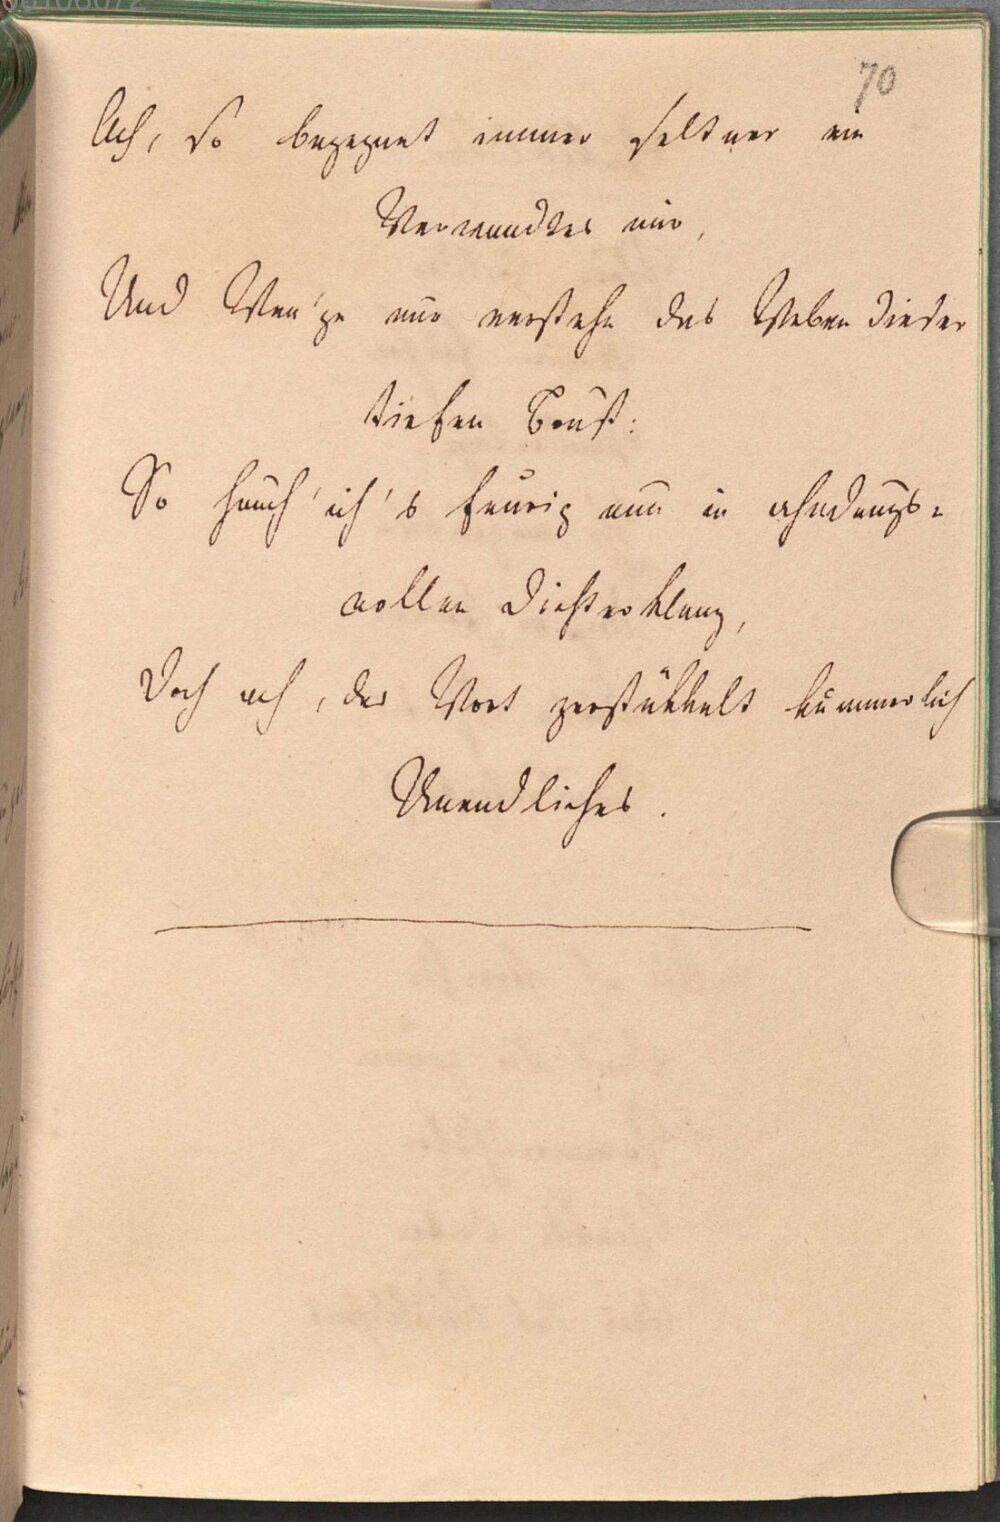 70
Ach, so begegnet immer seltner ein
Verwandtes mir,
Und Wen'ge nur verstehn das Weben dieser
tiefen Brust:
So hauch' ich's feurig nun in ahndungs=
vollen Dichterklang,
Doch ach, das Wort zerstükkelt kümmerlich
Unendliches.